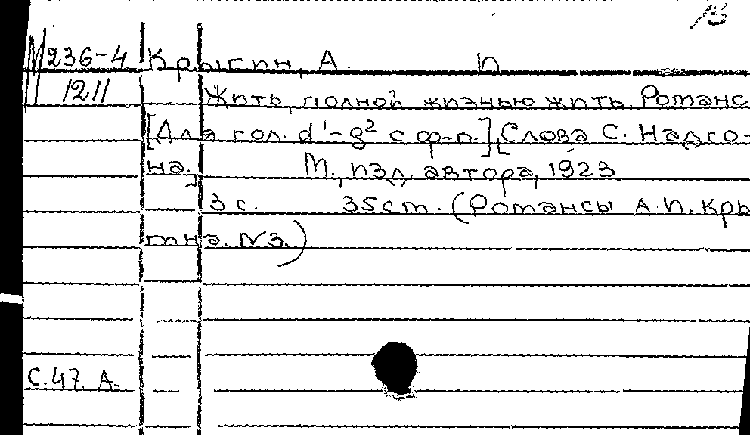 М236-4 Крыгин, А. П
1211
Жить, полной жизнью жить. Романс
[Для гол. d¹-g² с ф-п.] [Слова С. Надсо-
на.] М., изд. автора, 1923
3 с. 35 cm. (Романсы А.П. Кры-
гина. №3.)
С.47. А.